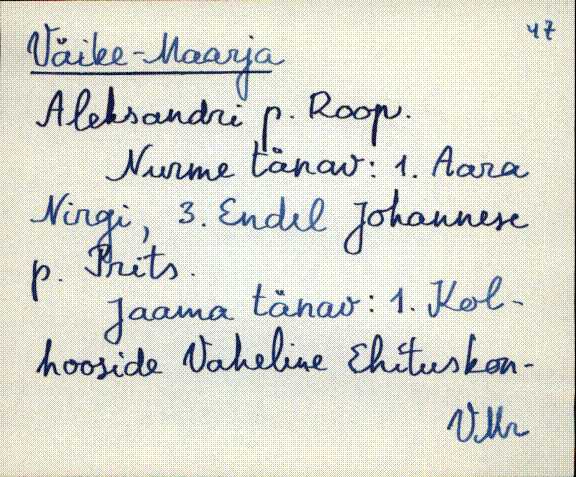 47
Väike-Maarja
Aleksandri p. Roop.
Nurme tänav: 1. Aara
Nirgi, 3. Endel Johannese
p. Prits.
Jaama tänav: 1. Kol-
hooside Vaheline Ehituskon-
VMr